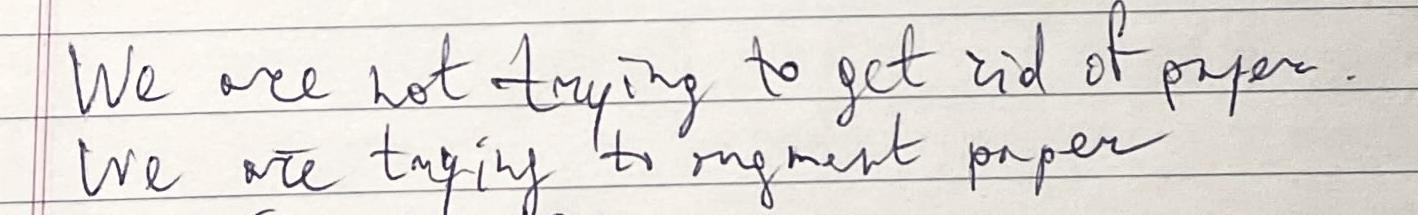 We are not trying to get rid of paper.
We are trying to augment paper